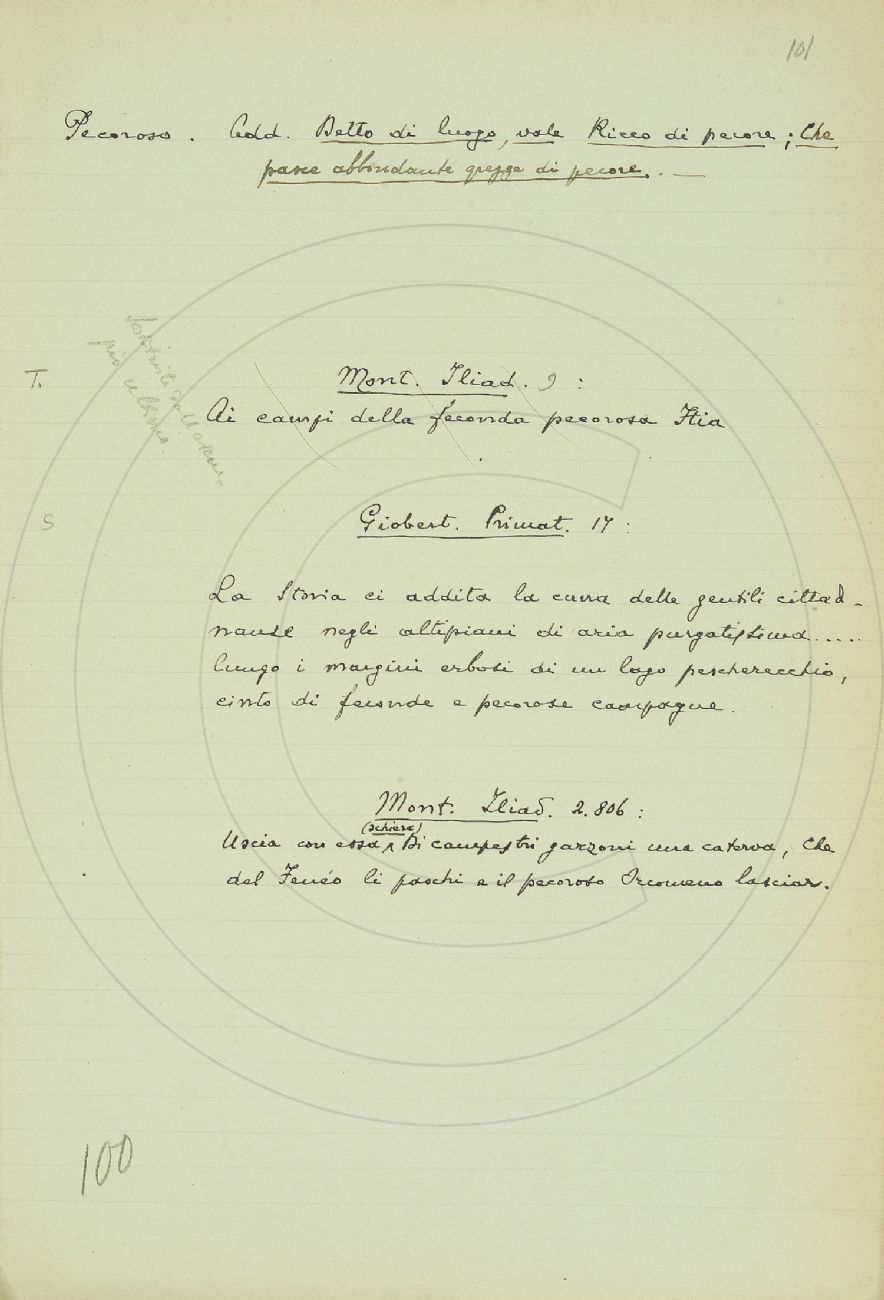 101
Pecoroso. Add. Detto di luogo, vale Ricco di pecore; Che
pasce abbondante gregge di pecore. —
T.
più ultimo.
Mont. Iliad. 9 :
Ai campi della feconda pecorosa Ftia
S
Giobert. Primat. 17 :
La Storia ci addita la cuna delle gentili cittad-
nanze negli altipiani di aria purgatissima.....
lungo i margini erbosi di un lago pescherecchio,
cinto di feconde e pecorose campagne.
Mont. Iliad. 2.806 :
(schiera)
Uscia con essa ^ Di campestri garzoni una caterva, Che
del Fenéo li paschi e il pecoroso Orcomeno lasciar.
100